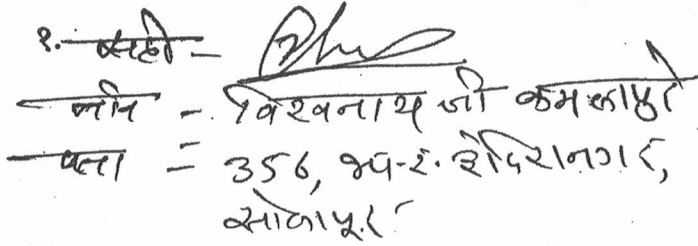 १. सही -
नांव - विश्वनाथ जी कमलापुरे
पत्ता - 356, भ.चं. इंदिरानगर,
सोलापूर.